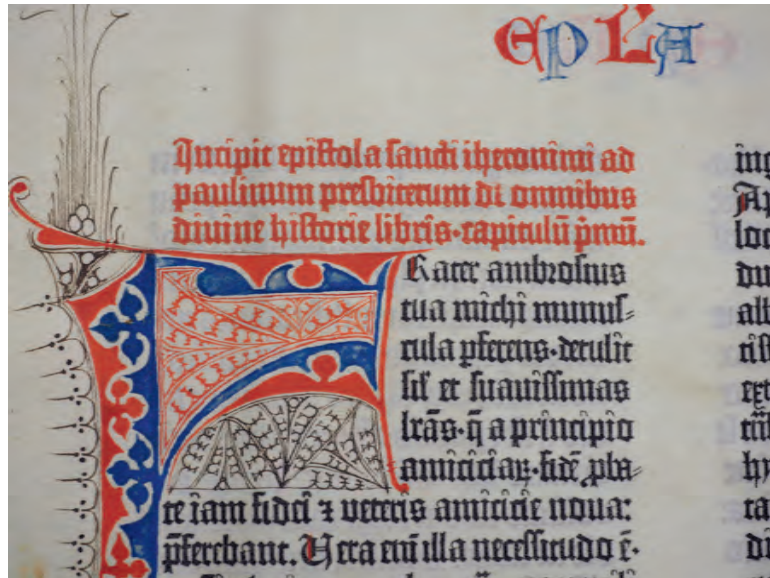 EpLA
Incipit epistola sancti iheronimi ad
paulinum presbiterum de omnibus
divine historie libris·capitulū p̄mū.
Frater ambrosius
tua michi munus-
cula ꝑferens·detulit
sil' et suavissimas
lr̄as·q̄ a principio
amiciciaꝝ·fidē ꝓba-
te iam fidei ⁊ veteris amicicie nova:
p̄ferebant. Vera eni̅ illa necessitudo ē·
ing
Ap
loc
du
alb
cist
hy
ta
di